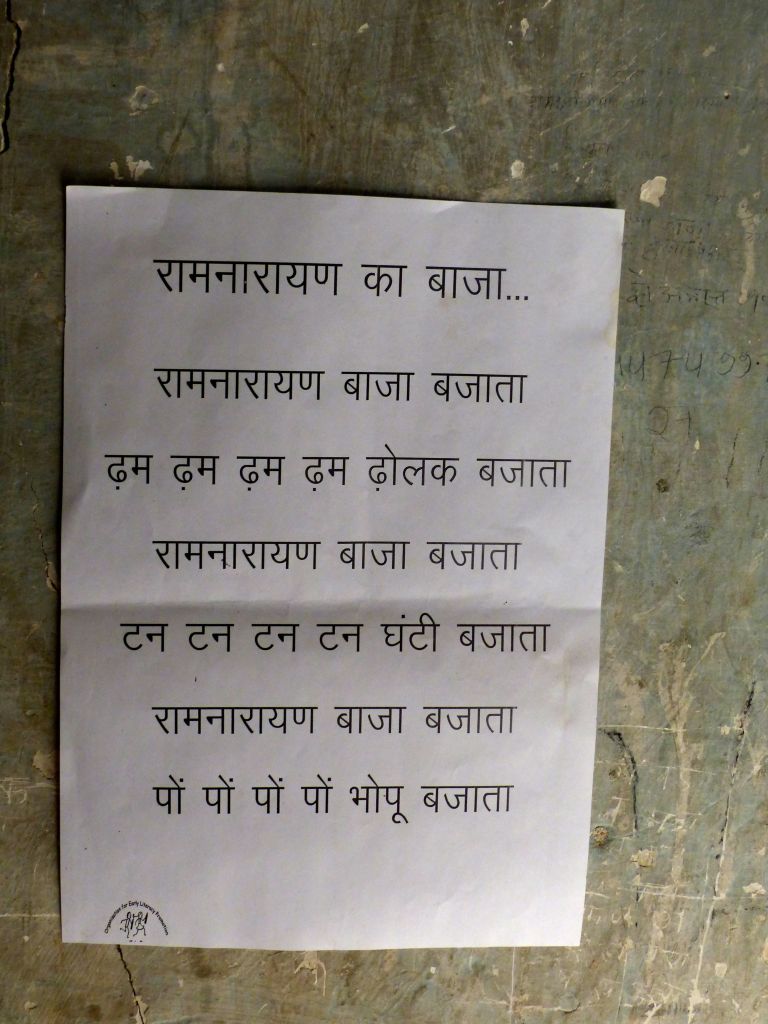 रामनारायण का बाजा...
रामनारायण बाजा बजाता
ढ़म ढ़म ढ़म ढ़म ढ़ोलक बजाता
रामनारायण बाजा बजाता
टन टन टन टन घंटी बजाता
रामनारायण बाजा बजाता
पों पों पों पों भोपू बजाता
Organisation for Early Literacy Promotion